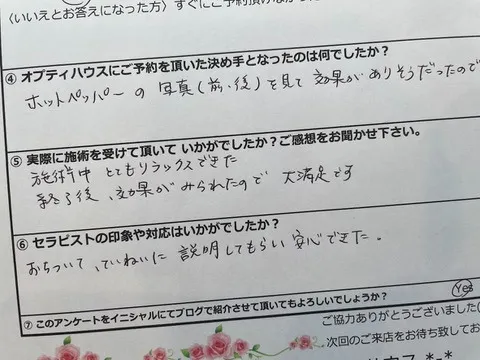 〈いいえとお答えになった方〉すぐにご予約頂けなか
④ オプティハウスにご予約を頂いた決め手となったのは何でしたか？
ホットペッパーの 写真(前・後)を見て 効果がありそうだったので
⑤ 実際に施術を受けて頂いて いかがでしたか？ご感想をお聞かせ下さい。
施術中 とてもリラックスできた
終了後、効果がみられたので 大満足です
⑥ セラピストの印象や対応はいかがでしたか？
おちついて、ていねいに 説明してもらい 安心できた。
⑦ このアンケートをイニシャルにてブログで紹介させて頂いてもよろしいでしょうか？ Yes
ご協力ありがとうございました
次回のご来店をお待ち致してお